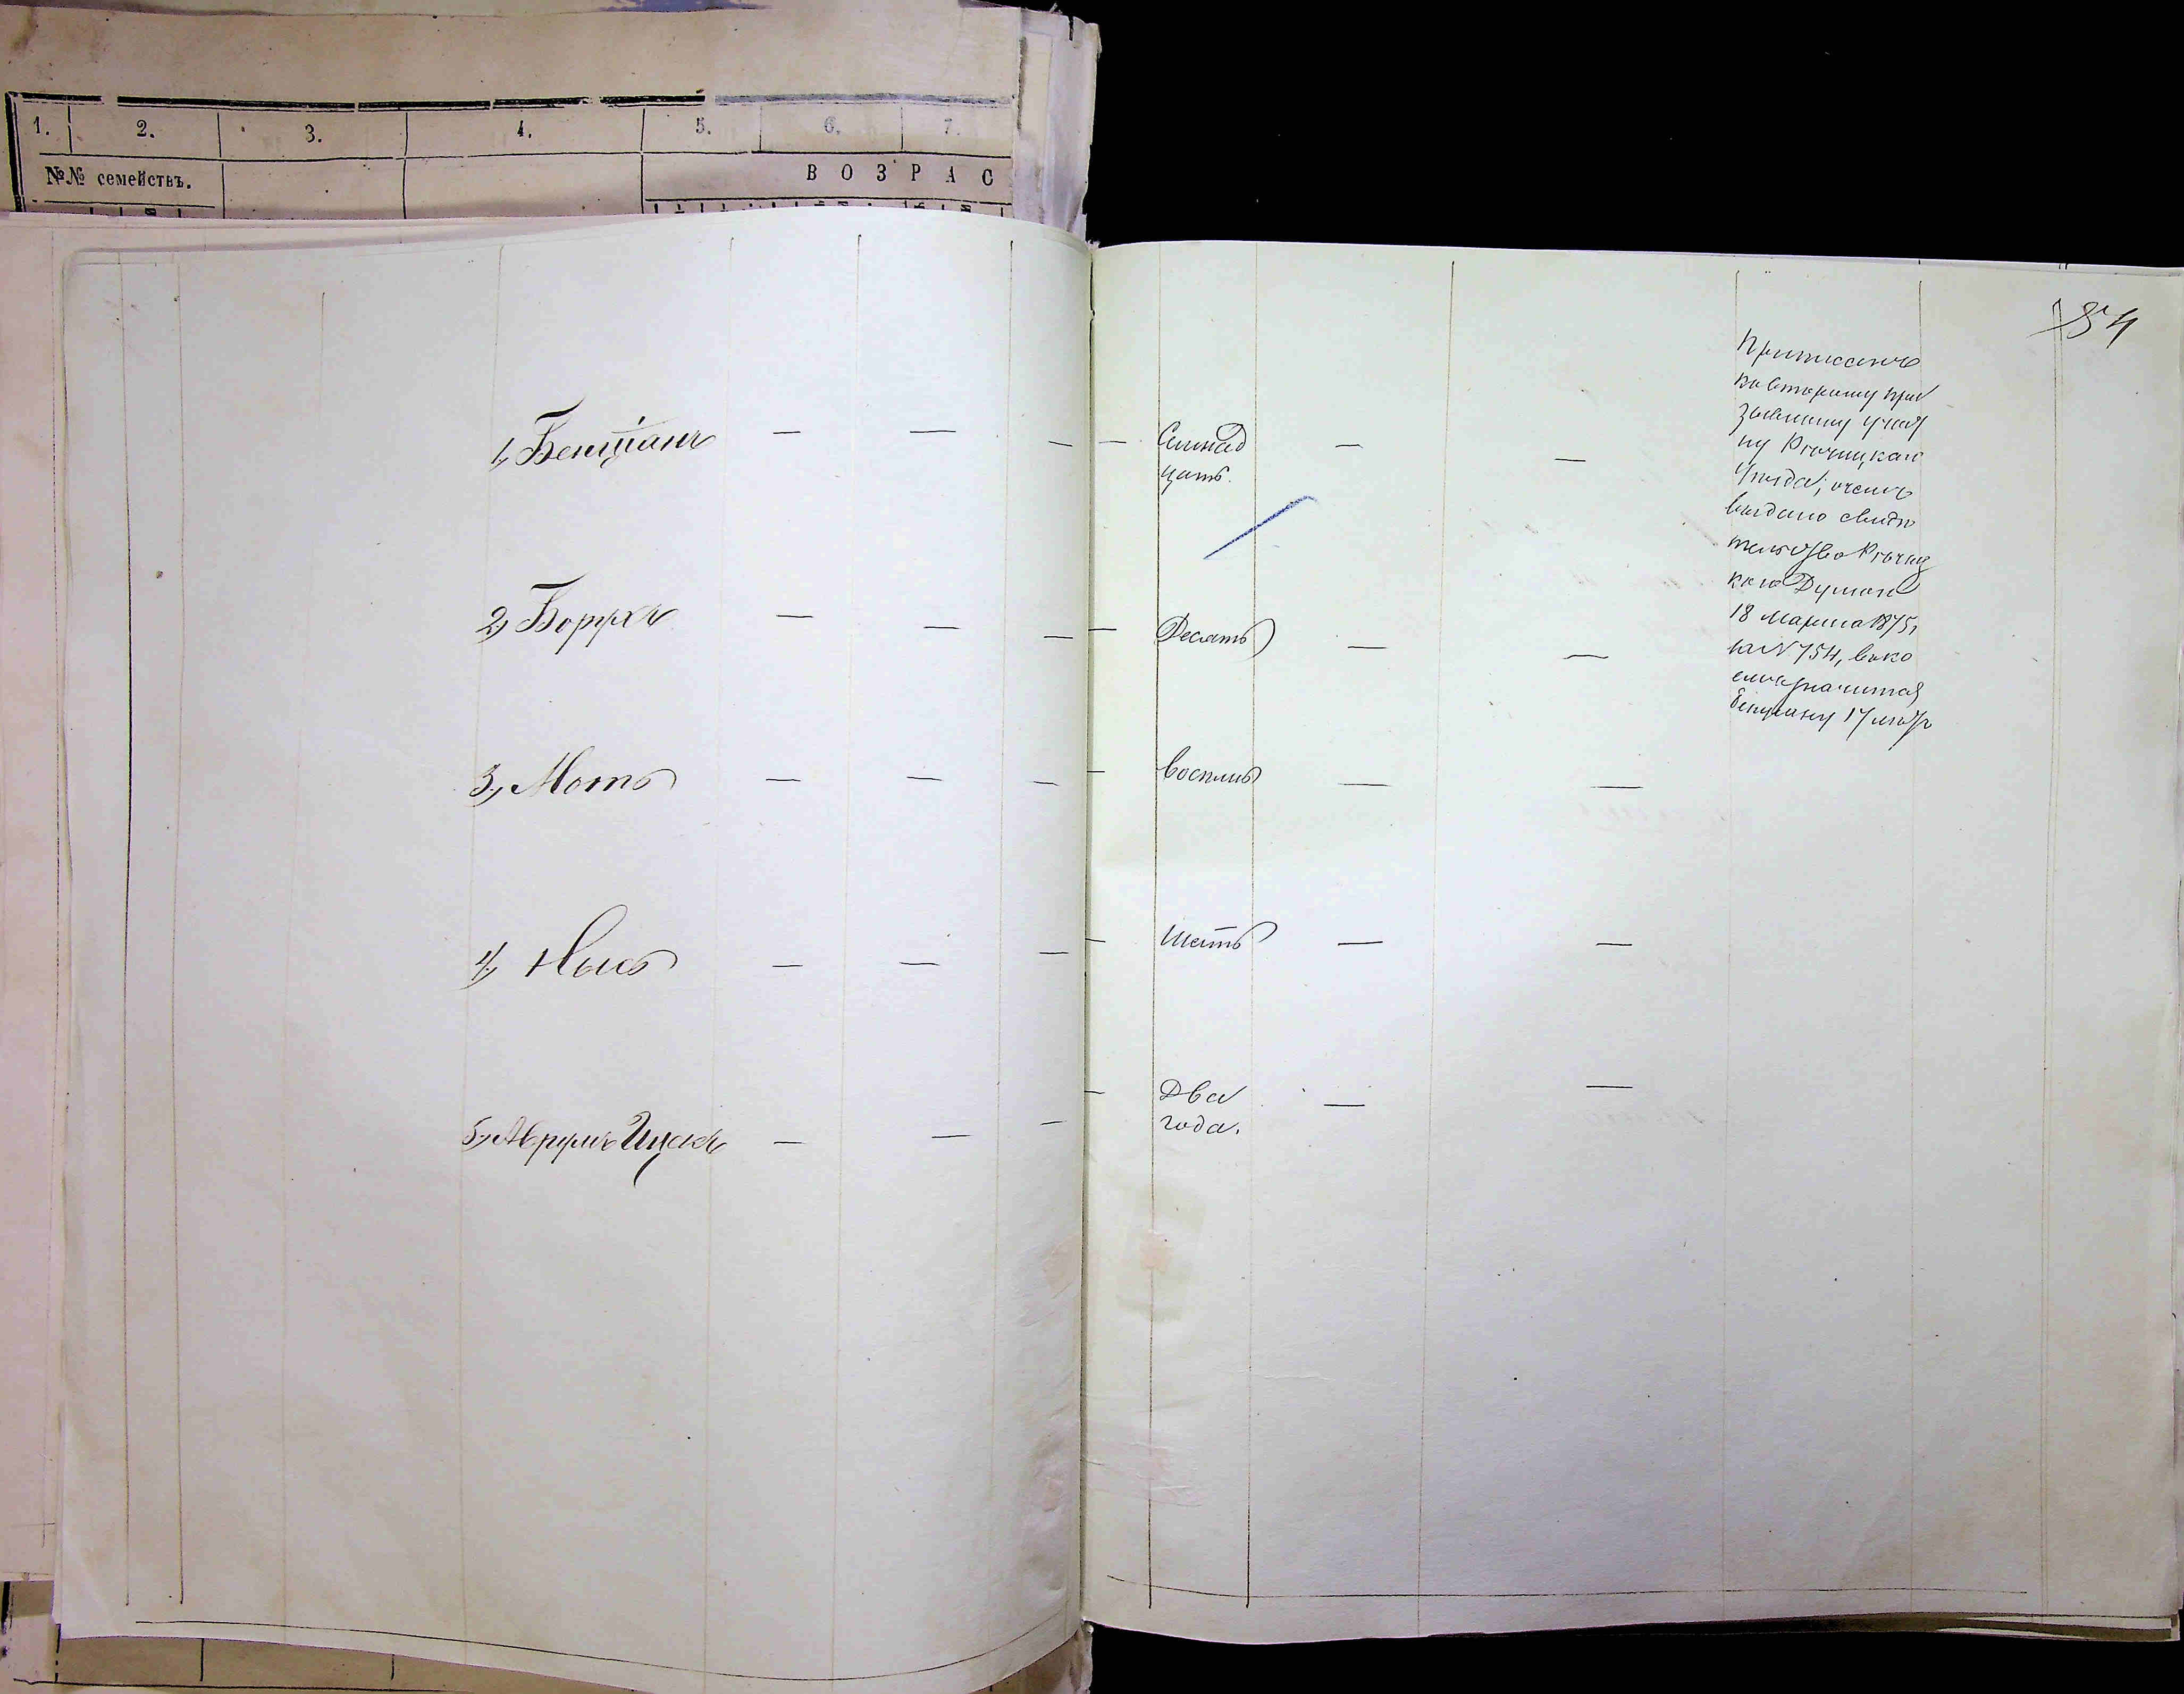 1. 2. 3. 4. 5. 6. 7.
№№ семействъ.
ВОЗРАС
54
1, Бенціанъ — — — — Семнад
цать.
2, Борухъ — — — — Десять — —
3, Мота — — — — восемь — —
4, — — — — Шесть — —
5, Аврумъ Ицскъ — — — — Два — —
года.
Приписанъ
ко второму при
зывному участ
ку Рѣчицкаго
уѣзда, о чемъ
выдано свидѣ
тельство Рѣчиц
кою Думою
18 марта 1875 г
за № 754, въ ко
емъ значится
Бенціану 17 лѣтъ